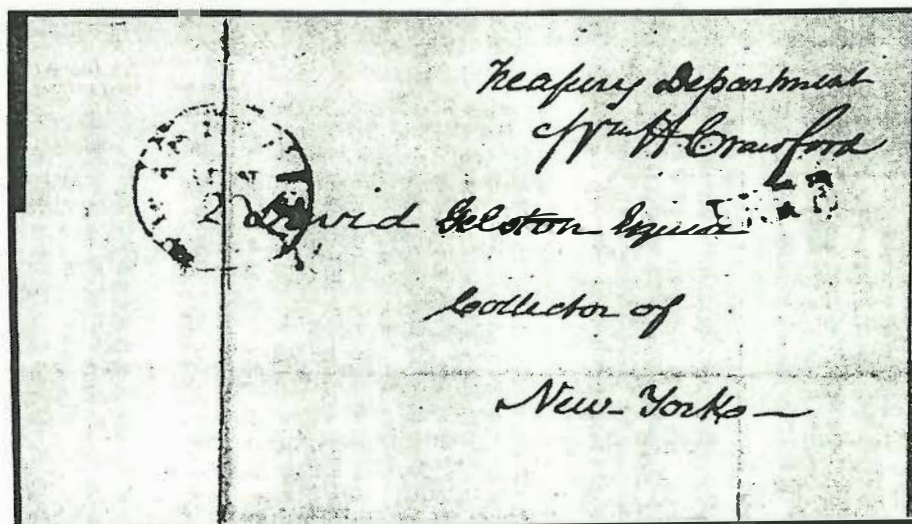 Treasury Department
Wm H Crawford
David Gelston Esquire
Collector of
New-York-